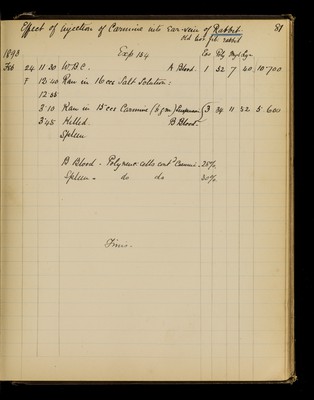 Effect of Injection of Carmine into Ear-vein of Rabbit. 87
Old loss fib rabbit
1893 Exp 134 Eos Poly Myel Ly.
Feb 24 11.30 W.B.C. A Blood. 1 52 7 40 10.700
F 12.40 Ran in 16 ccs Salt Solution:
12.55
3.10 Ran in 15 ccs Carmine Suspension 3 34 11 52 5.600
3.45 Killed. B Blood.
Spleen
B Blood - Polynucr. cells cont.g Carmine - 25%
Spleen - do do 30%
Finis.